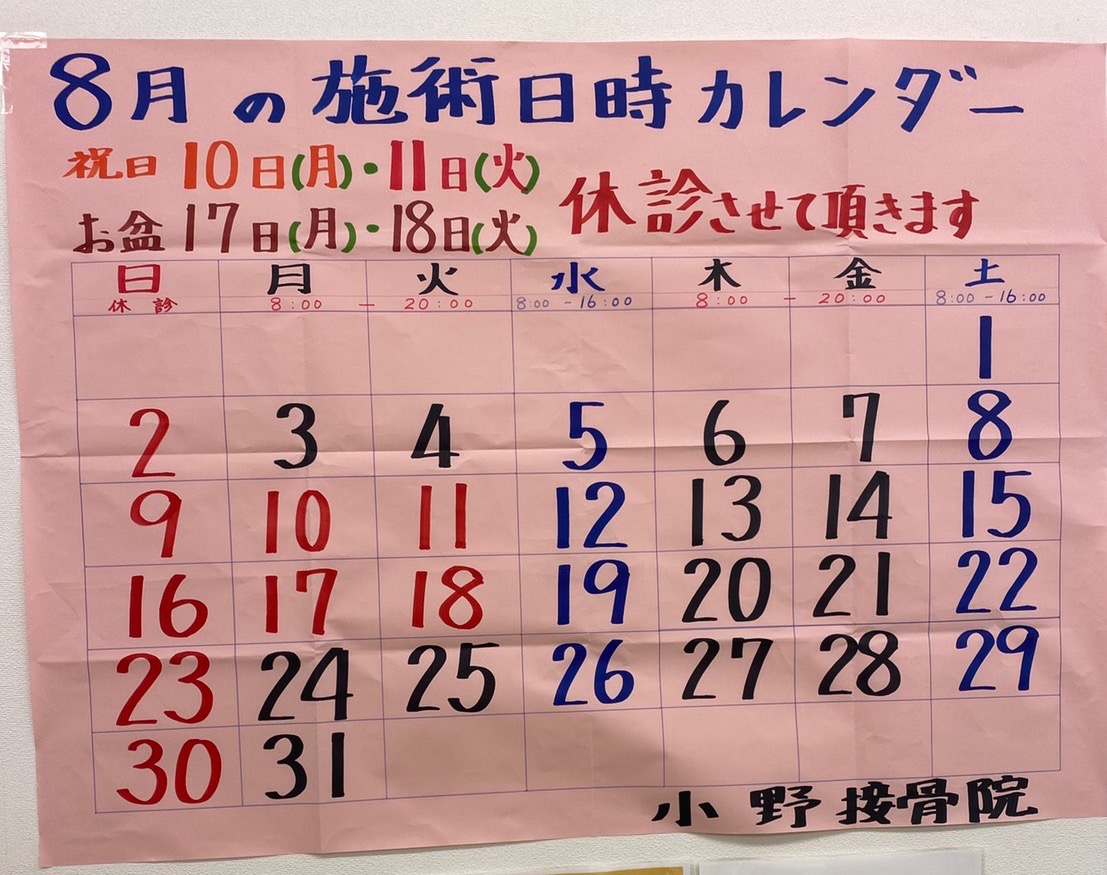 8月の施術日時カレンダー
祝日 10日(月)・11日(火)
お盆 17日(月)・18日(火)
休診させて頂きます
日 月 火 水 木 金 土
休診 8:00 - 20:00 8:00 - 16:00 8:00 - 20:00 8:00 - 16:00
1
2 3 4 5 6 7 8
9 10 11 12 13 14 15
16 17 18 19 20 21 22
23 24 25 26 27 28 29
30 31
小野接骨院